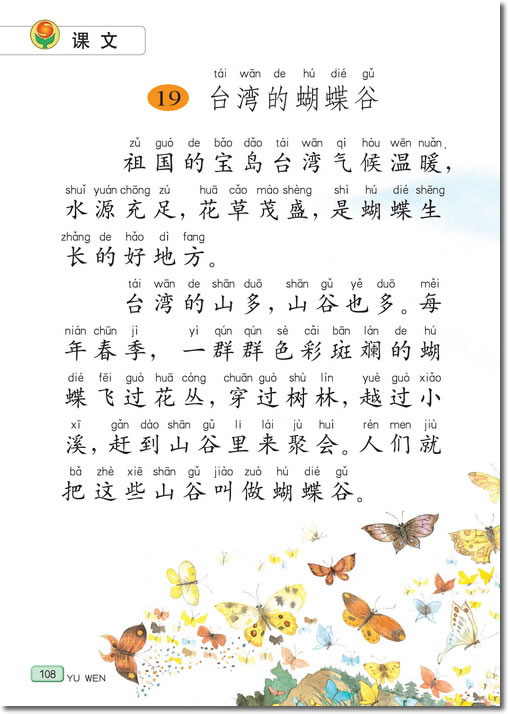 课文
tái wān de hú dié gǔ
19 台湾的蝴蝶谷
zǔ guó de bǎo dǎo tái wān qì hòu wēn nuǎn,
祖国的宝岛台湾气候温暖，
shuǐ yuán chōng zú huā cǎo mào shèng shì hú dié shēng
水源充足，花草茂盛，是蝴蝶生
zhǎng de hǎo dì fang
长的好地方。
tái wān de shān duō shān gǔ yě duō měi
台湾的山多，山谷也多。每
nián chūn jì yì qún qún sè cǎi bān lán de hú
年春季，一群群色彩斑斓的蝴
dié fēi guò huā cóng chuān guò shù lín yuè guò xiǎo
蝶飞过花丛，穿过树林，越过小
xī gǎn dào shān gǔ li lái jù huì rén men jiù
溪，赶到山谷里来聚会。人们就
bǎ zhè xiē shān gǔ jiào zuò hú dié gǔ
把这些山谷叫做蝴蝶谷。
108
YU WEN